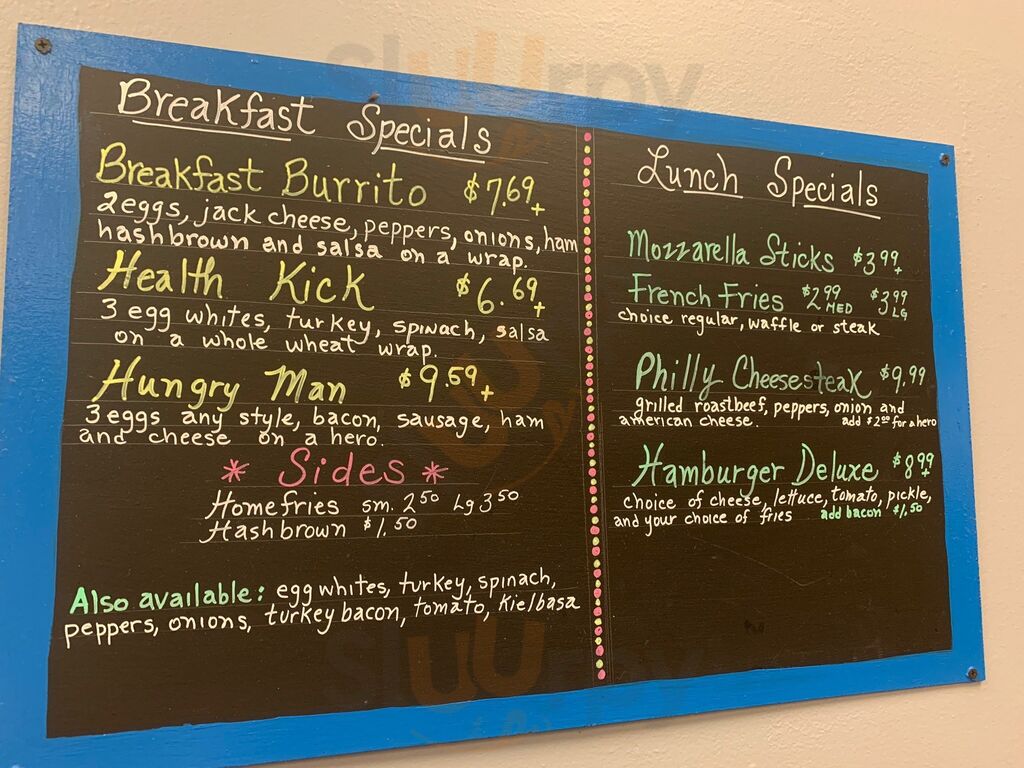 Breakfast Specials
Breakfast Burrito $7.69+
2eggs, jack cheese, peppers, onions, ham
hashbrown and salsa on a wrap.
Health Kick $6.69+
3 egg whites, turkey, spinach, salsa
on a whole wheat wrap.
Hungry Man $9.59+
3 eggs any style, bacon, sausage, ham
and cheese on a hero.
* Sides *
Homefries sm. 2.50 Lg 3.50
Hashbrown $1.50
Also available: egg whites, turkey, spinach,
peppers, onions, turkey bacon, tomato, Kielbasa
Lunch Specials
Mozzarella Sticks $3.99+
French Fries $2.99 MED $3.99 LG
choice regular, waffle or steak
Philly Cheesesteak $9.99
grilled roastbeef, peppers, onion and
american cheese. add $2.00 for a hero
Hamburger Deluxe $8.99+
choice of cheese, lettuce, tomato, pickle,
and your choice of fries add bacon $1.50
slUUrpy
slUUrpy